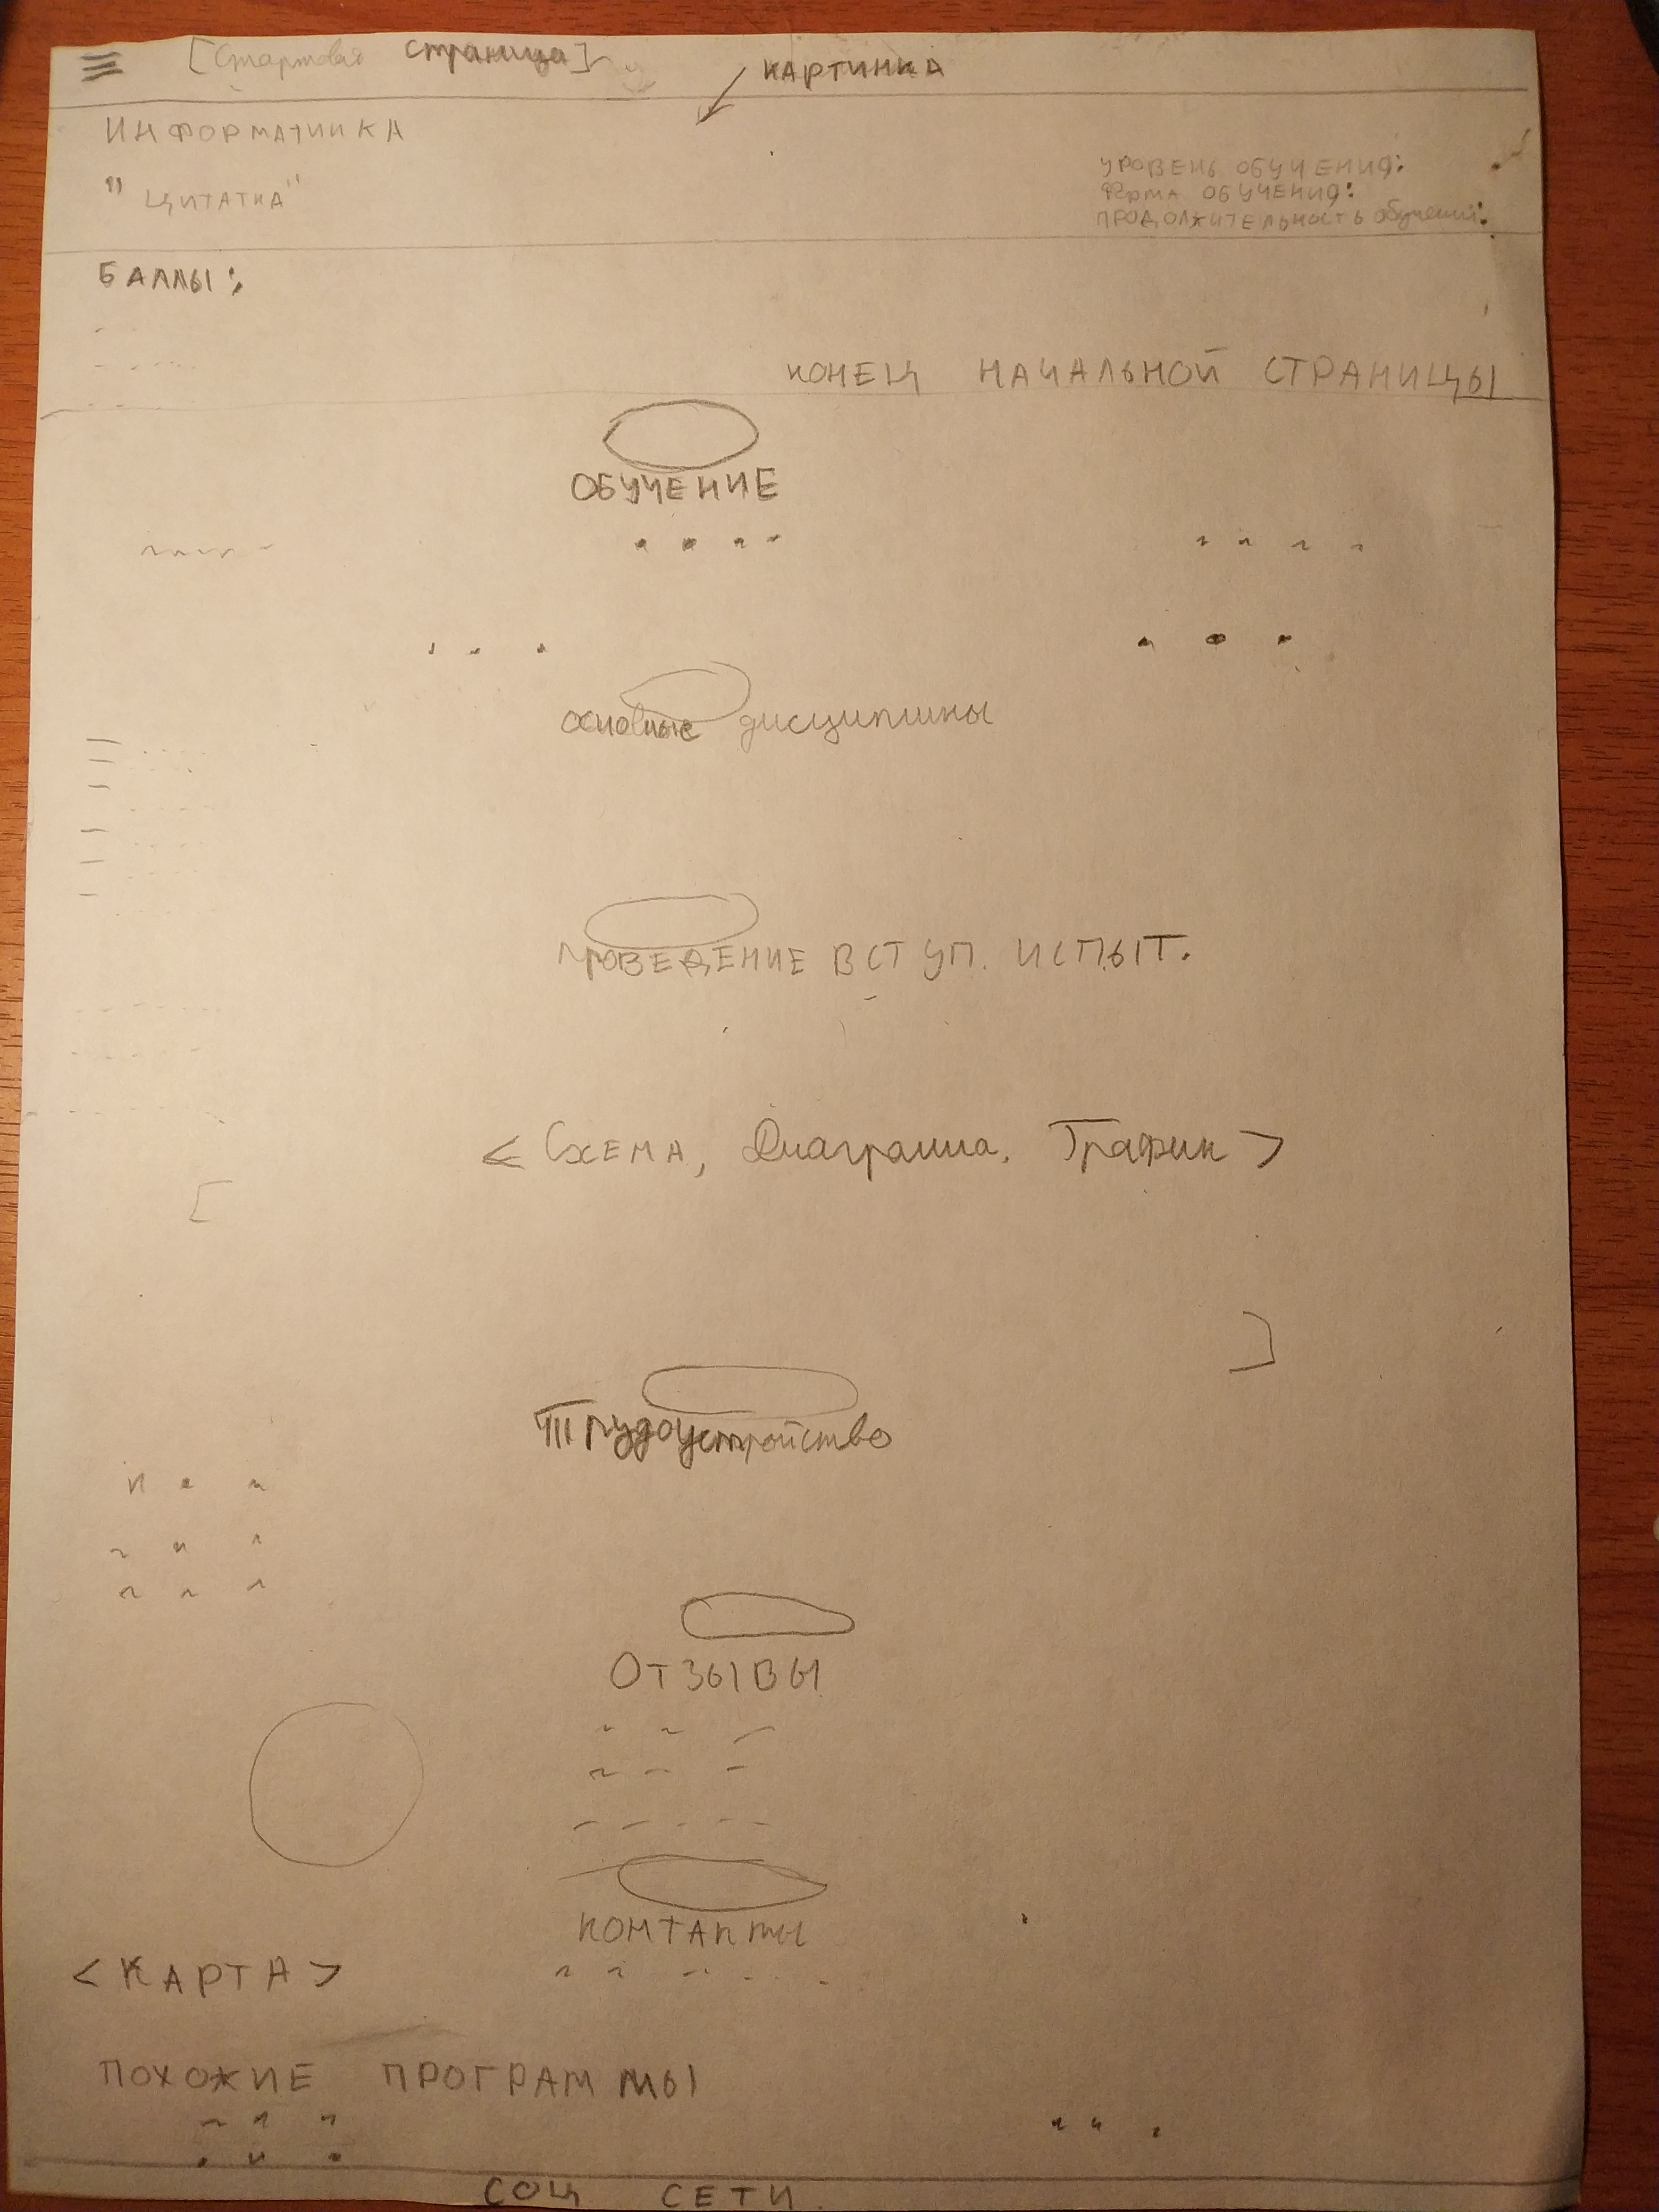 [Стартовая страница]
КАРТИНКА
ИНФОРМАТИИКА
"ЦИТАТКА"
УРОВЕНЬ ОБУЧЕНИЯ:
ФОРМА ОБУЧЕНИЯ:
ПРОДОЛЖИТЕЛЬНОСТЬ обучения:
БАЛЛЫ:
КОНЕЦ НАЧАЛЬНОЙ СТРАНИЦЫ
ОБУЧЕНИЕ
основные дисциплины
ПРОВЕДЕНИЕ ВСТУП. ИСПЫТ.
< Схема, Диаграмма, График >
Трудоустройство
ОТЗЫВЫ
КОНТАКТЫ
<КАРТА>
ПОХОЖИЕ ПРОГРАММЫ
СОЦ СЕТИ